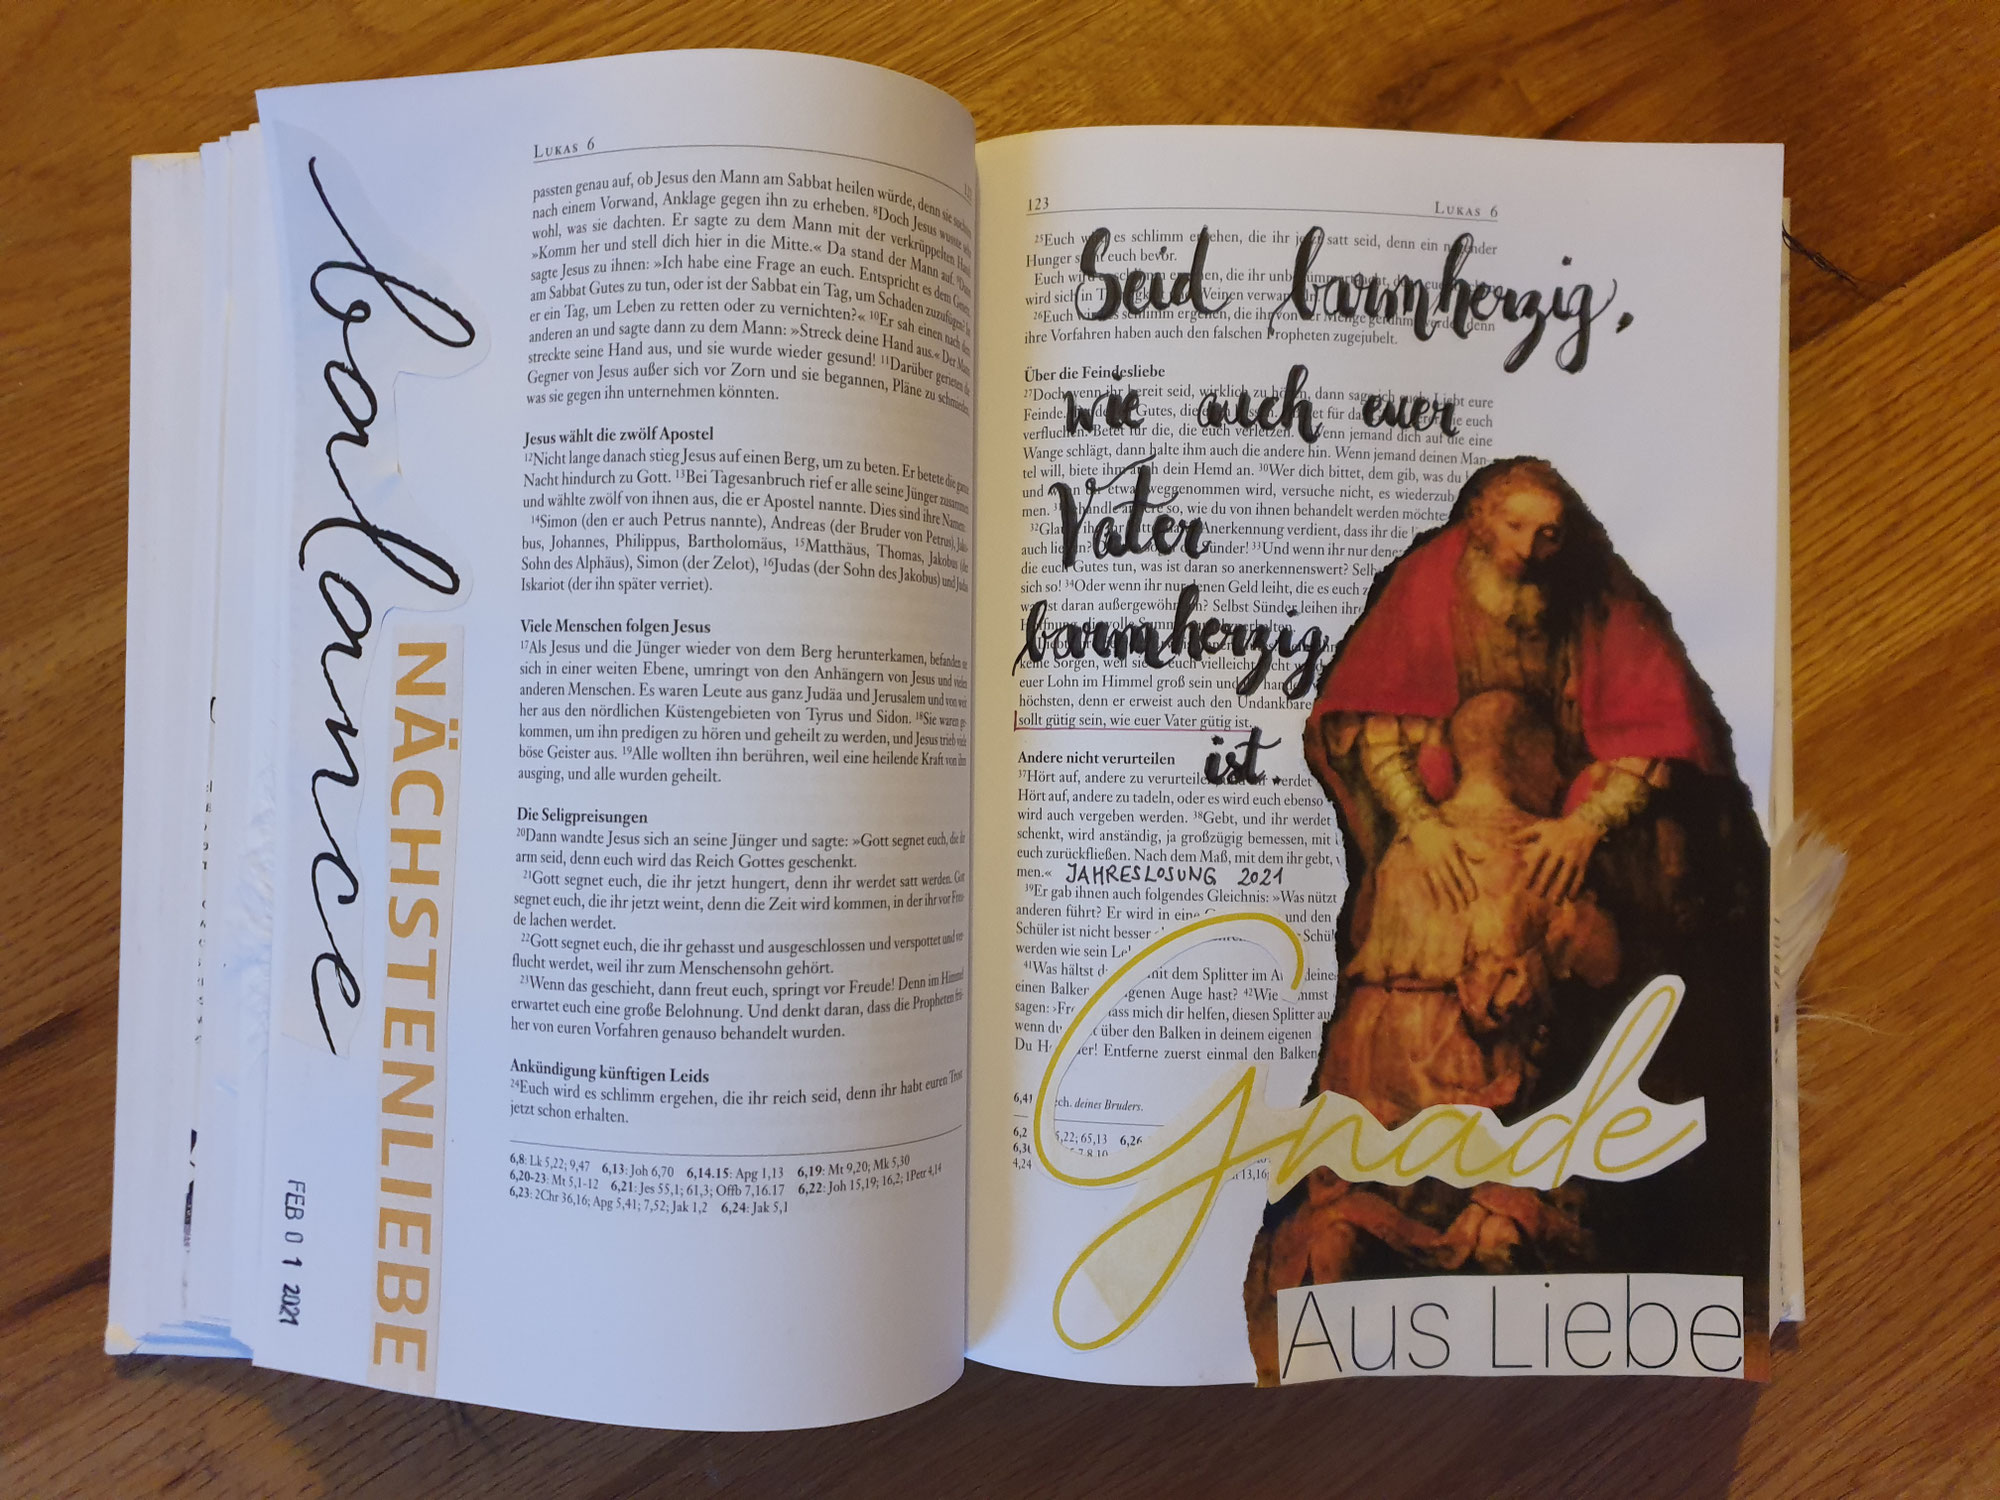 balance
NÄCHSTENLIEBE
FEB 01 2021
LUKAS 6
passten genau auf, ob Jesus den Mann am Sabbat heilen würde, denn sie suchten
nach einem Vorwand, Anklage gegen ihn zu erheben. ⁸Doch Jesus wusste sehr
wohl, was sie dachten. Er sagte zu dem Mann mit der verkrüppelten Hand:
»Komm her und stell dich hier in die Mitte.« Da stand der Mann auf. ⁹Dann
sagte Jesus zu ihnen: »Ich habe eine Frage an euch. Entspricht es dem Gesetz,
am Sabbat Gutes zu tun, oder ist der Sabbat ein Tag, um Schaden zuzufügen? Ist
er ein Tag, um Leben zu retten oder zu vernichten?« ¹⁰Er sah einen nach dem
anderen an und sagte dann zu dem Mann: »Streck deine Hand aus.« Der Mann
streckte seine Hand aus, und sie wurde wieder gesund! ¹¹Darüber gerieten die
Gegner von Jesus außer sich vor Zorn und sie begannen, Pläne zu schmieden,
was sie gegen ihn unternehmen könnten.
Jesus wählt die zwölf Apostel
¹²Nicht lange danach stieg Jesus auf einen Berg, um zu beten. Er betete die ganze
Nacht hindurch zu Gott. ¹³Bei Tagesanbruch rief er alle seine Jünger zusammen
und wählte zwölf von ihnen aus, die er Apostel nannte. Dies sind ihre Namen:
¹⁴Simon (den er auch Petrus nannte), Andreas (der Bruder von Petrus), Jako-
bus, Johannes, Philippus, Bartholomäus, ¹⁵Matthäus, Thomas, Jakobus (der
Sohn des Alphäus), Simon (der Zelot), ¹⁶Judas (der Sohn des Jakobus) und Judas
Iskariot (der ihn später verriet).
Viele Menschen folgen Jesus
¹⁷Als Jesus und die Jünger wieder von dem Berg herunterkamen, befanden sie
sich in einer weiten Ebene, umringt von den Anhängern von Jesus und vielen
anderen Menschen. Es waren Leute aus ganz Judäa und Jerusalem und von weit
her aus den nördlichen Küstengebieten von Tyrus und Sidon. ¹⁸Sie waren ge-
kommen, um ihn predigen zu hören und geheilt zu werden, und Jesus trieb viele
böse Geister aus. ¹⁹Alle wollten ihn berühren, weil eine heilende Kraft von ihm
ausging, und alle wurden geheilt.
Die Seligpreisungen
²⁰Dann wandte Jesus sich an seine Jünger und sagte: »Gott segnet euch, die ihr
arm seid, denn euch wird das Reich Gottes geschenkt.
²¹Gott segnet euch, die ihr jetzt hungert, denn ihr werdet satt werden. Gott
segnet euch, die ihr jetzt weint, denn die Zeit wird kommen, in der ihr vor Freu-
de lachen werdet.
²²Gott segnet euch, die ihr gehasst und ausgeschlossen und verspottet und ver-
flucht werdet, weil ihr zum Menschensohn gehört.
²³Wenn das geschieht, dann freut euch, springt vor Freude! Denn im Himmel
erwartet euch eine große Belohnung. Und denkt daran, dass die Propheten frü-
her von euren Vorfahren genauso behandelt wurden.
Ankündigung künftigen Leids
²⁴Euch wird es schlimm ergehen, die ihr reich seid, denn ihr habt euren Trost
jetzt schon erhalten.
6,8: Lk 5,22; 9,47 6,13: Joh 6,70 6,14.15: Apg 1,13 6,19: Mt 9,20; Mk 5,30
6,20-23: Mt 5,1-12 6,21: Jes 55,1; 61,3; Offb 7,16.17 6,22: Joh 15,19; 16,2; 1Petr 4,14
6,23: 2Chr 36,16; Apg 5,41; 7,52; Jak 1,2 6,24: Jak 5,1
123 LUKAS 6
Seid barmherzig,
wie auch euer
Vater
barmherzig
ist.
²⁵Euch es schlimm ergehen, die ihr jetzt satt seid, denn ein
Hunger euch bevor.
Euch die ihr
wird sich in
²⁶Euch schlimm ergehen, die ihr von der Menge
ihre Vorfahren haben auch den falschen Propheten zugejubelt.
Über die Feindesliebe
²⁷Doch wenn ihr bereit seid, wirklich zu hören, dann sage ich euch: Liebt eure
Feinde. Gutes, die euch
verfluchen. Betet für die, die euch verletzen. Wenn jemand dich auf die eine
Wange schlägt, dann halte ihm auch die andere hin. Wenn jemand deinen Man-
tel will, biete ihm auch dein Hemd an. ³⁰Wer dich bittet, dem gib, was du
und weggenommen wird, versuche nicht, es
men. so, wie du von ihnen behandelt werden möchte
Anerkennung verdient, dass ihr die
auch Sünder! ³³Und wenn ihr nur
die euch Gutes tun, was ist daran so anerkennenswert?
sich so! ³⁴Oder wenn ihr nur denen Geld leiht, die es euch
ist daran Selbst Sünder leihen
keine Sorgen, weil sie euch vielleicht nicht
euer Lohn im Himmel groß sein und
höchsten, denn er erweist auch den
sollt gütig sein, wie euer Vater gütig ist.
Andere nicht verurteilen
³⁷Hört auf, andere zu werdet
Hört auf, andere zu tadeln, oder es wird euch ebenso
wird auch vergeben werden. ³⁸Gebt, und ihr werdet
schenkt, wird anständig, ja großzügig bemessen, mit
euch zurückfließen. Nach dem Maß, mit dem ihr gebt,
men.« JAHRESLOSUNG 2021
³⁹Er gab ihnen auch folgendes Gleichnis: »Was nützt
anderen führt? Er wird in eine und den
Schüler ist nicht besser
werden wie sein
⁴¹Was hältst mit dem Splitter im
einen Balken Auge hast? ⁴²Wie
sagen: mich dir helfen, diesen Splitter
wenn du über den Balken in deinem eigenen
Du Entferne zuerst einmal den Balken
deines Bruders.
5,22; 65,13
Gnade
Aus Liebe